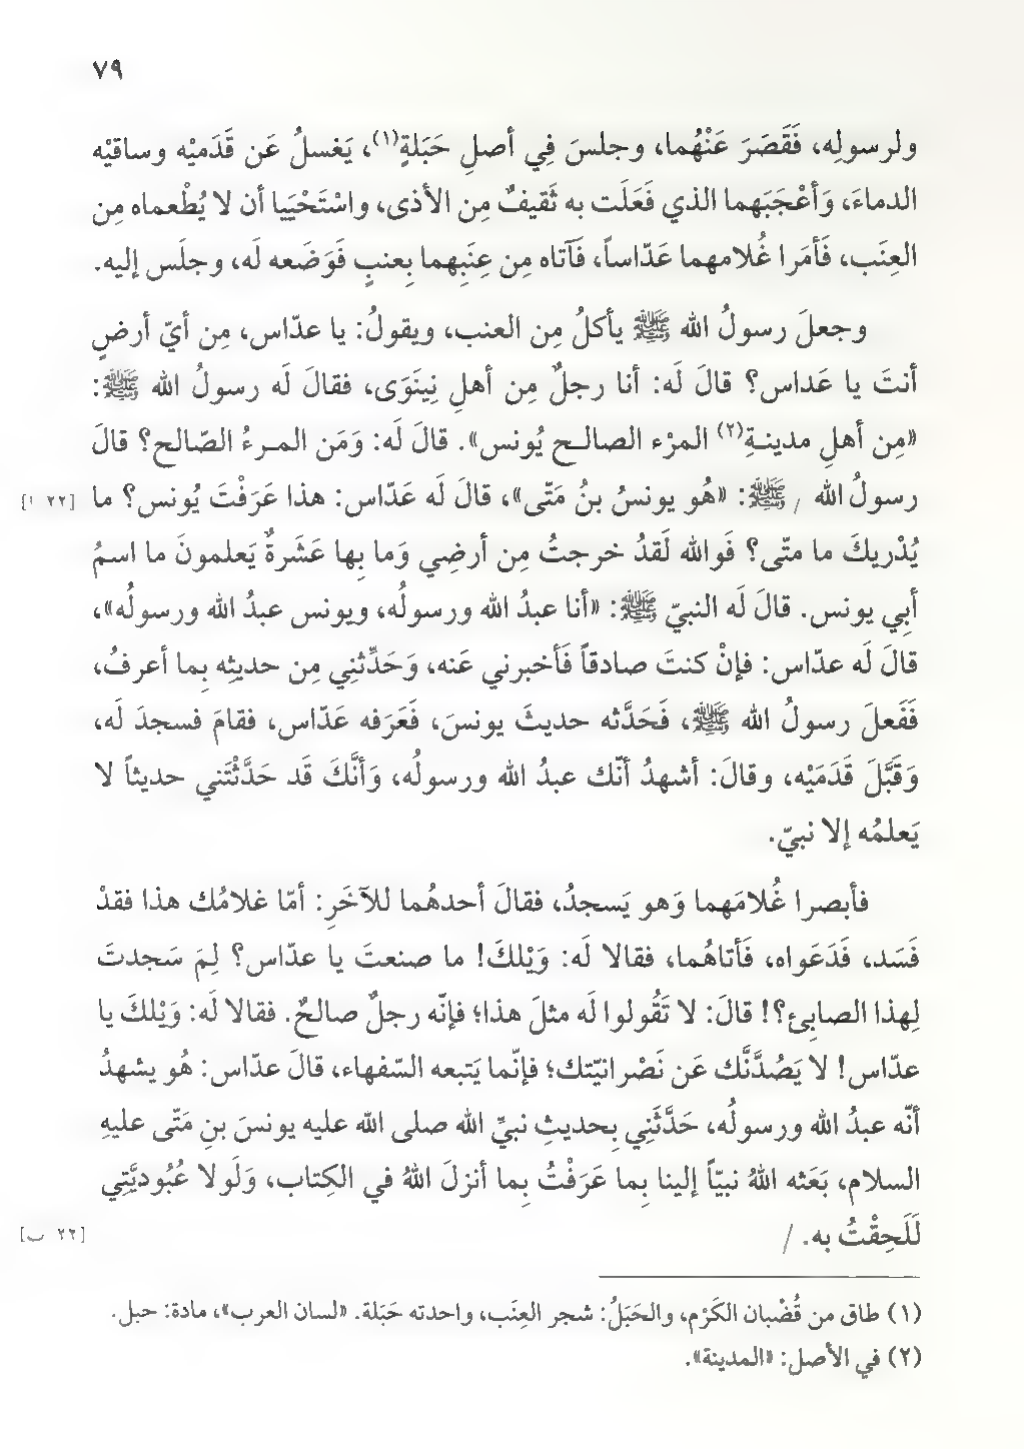 ٧٩
ولرسولِه، فَقَصَرَ عَنْهُما، وجلسَ فِي أصلِ حَبَلةٍ(١)، يَغسلُ عَن قَدَميْه وساقيْه
الدماءَ، وَأعْجَبَهما الذي فَعَلَت به ثَقيفٌ مِن الأذى، واسْتَحْيَيا أن لا يُطْعماه مِن
العِنَب، فَأمَرا غُلامهما عَدّاساً، فَآتاه مِن عِنَبِهما بِعنبٍ فَوَضَعه لَه، وجلَس إليه.
وجعلَ رسولُ الله ﷺ يأكلُ مِن العنب، ويقولُ: يا عدّاس، مِن أيّ أرضٍ
أنتَ يا عَداس؟ قالَ لَه: أنا رجلٌ مِن أهلِ نِينَوَى، فقالَ لَه رسولُ الله ﷺ:
«مِن أهلِ مدينةِ(٢) المرْء الصالح يُونس». قالَ لَه: وَمَن المرءُ الصّالح؟ قالَ
رسولُ الله / ﷺ: «هُو يونسُ بنُ مَتّى»، قالَ لَه عَدّاس: هذا عَرَفْتَ يُونس؟ ما [٢٢ ١]
يُدْريكَ ما متّى؟ فَوالله لَقدُ خرجتُ مِن أرضِي وَما بِها عَشَرةٌ يَعلمونَ ما اسمُ
أبِي يونس. قالَ لَه النبيّ ﷺ: «أنا عبدُ الله ورسولُه، ويونس عبدُ الله ورسولُه»،
قالَ لَه عدّاس: فإنْ كنتَ صادقاً فَأخبرني عَنه، وَحَدِّثنِي مِن حديثِه بِما أعرفُ،
فَفَعلَ رسولُ الله ﷺ، فَحَدَّثه حديثَ يونسَ، فَعَرَفه عَدّاس، فقامَ فسجدَ لَه،
وَقَبَّلَ قَدَمَيْه، وقالَ: أشهدُ أنّك عبدُ الله ورسولُه، وَأنَّكَ قَد حَدَّثْتَني حديثاً لا
يَعلمُه إلا نبيّ.
فأبصرا غُلامَهما وَهو يَسجدُ، فقالَ أحدهُما للآخَرِ: أمّا غلامُك هذا فقدْ
فَسَد، فَدَعَواه، فَأتاهُما، فقالا لَه: وَيْلكَ! ما صنعتَ يا عدّاس؟ لِمَ سَجدتَ
لِهذا الصابِئ؟! قالَ: لا تَقُولوا لَه مثلَ هذا؛ فإنّه رجلٌ صالحٌ. فقالا لَه: وَيْلكَ يا
عدّاس! لا يَصُدَّنَّك عَن نَصْرانيّتك؛ فإنّما يَتبعه السّفهاء، قالَ عدّاس: هُو يشهدُ
أنّه عبدُ الله ورسولُه، حَدَّثَنِي بِحديثِ نبيِّ الله صلى الله عليه يونسَ بنِ مَتّى عليهِ
السلام، بَعَثه اللهُ نبيّاً إلينا بِما عَرَفْتُ بِما أنزلَ اللهُ في الكِتاب، وَلَولا عُبُوديَّتِي
لَلَحِقْتُ به. / [٢٢ ب]
(١) طاق من قُضْبان الكَرْم، والحَبَلُ: شجر العِنَب، واحدته حَبَلة. «لسان العرب»، مادة: حبل.
(٢) في الأصل: «المدينة».